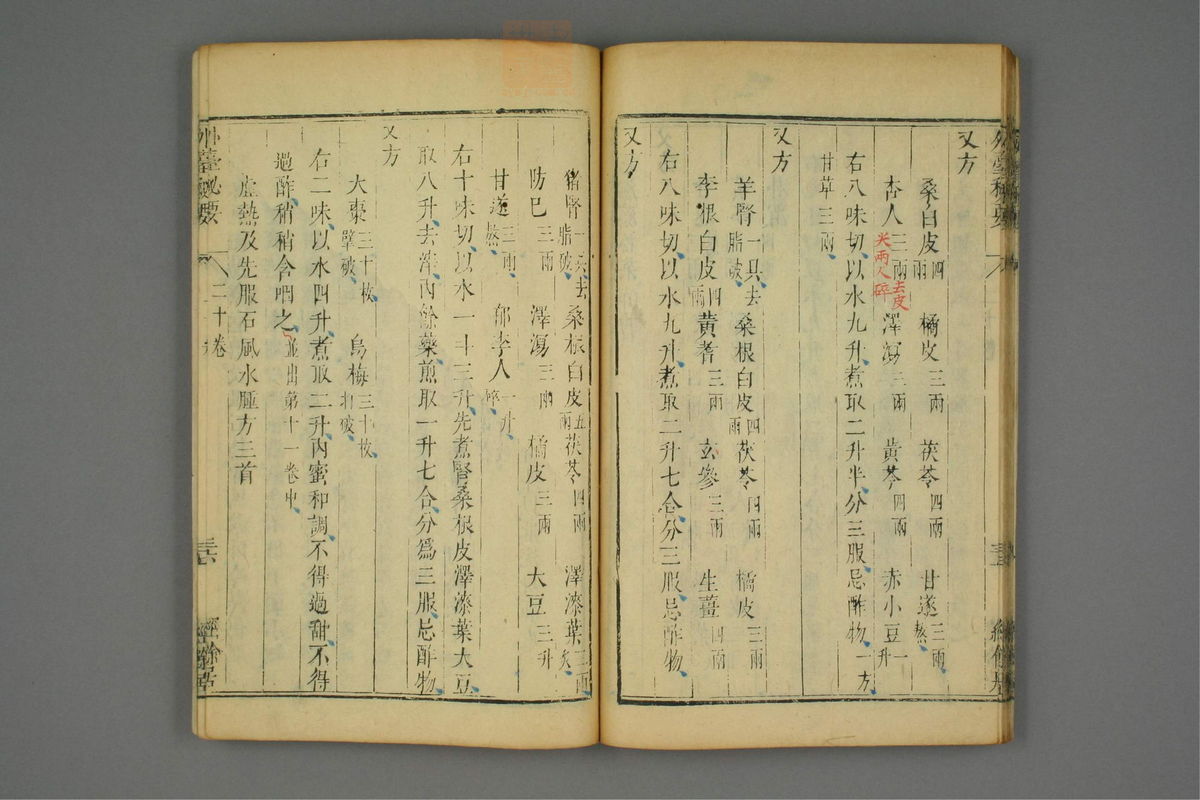 又方
桑白皮四兩 橘皮三兩 茯苓四兩 甘遂三兩熬
杏人三兩去皮尖兩人碎 澤瀉三兩 黄芩四兩 赤小豆一升
右八味切以水九升煮取二升半分三服忌酢物一方
甘草三兩
又方
羊腎一具去脂破 桑根白皮四兩 茯苓四兩 橘皮三兩
李根白皮四兩 黄耆三兩 玄參三兩 生薑四兩
右八味切以水九升煮取二升七合分三服忌酢物
又方
猪腎一具去脂破 桑根白皮五兩 茯苓四兩 澤漆葉三兩炙
防巳三兩 澤瀉三兩 橘皮三兩 大豆三升
甘遂三兩熬 郁李人一升碎
右十味切以水一斗三升先煮腎桑根皮澤漆葉大豆
取八升去滓内餘藥煎取一升七合分爲三服忌酢物
又方
大棗三十枚擘破 烏梅三十枚打破
右二味以水四升煮取二升内蜜和調不得過甜不得
過酢稍稍含咽之並出第十一卷中
虚熱及先服石風水腫方三首
外臺秘要 二十卷 三六 經餘居